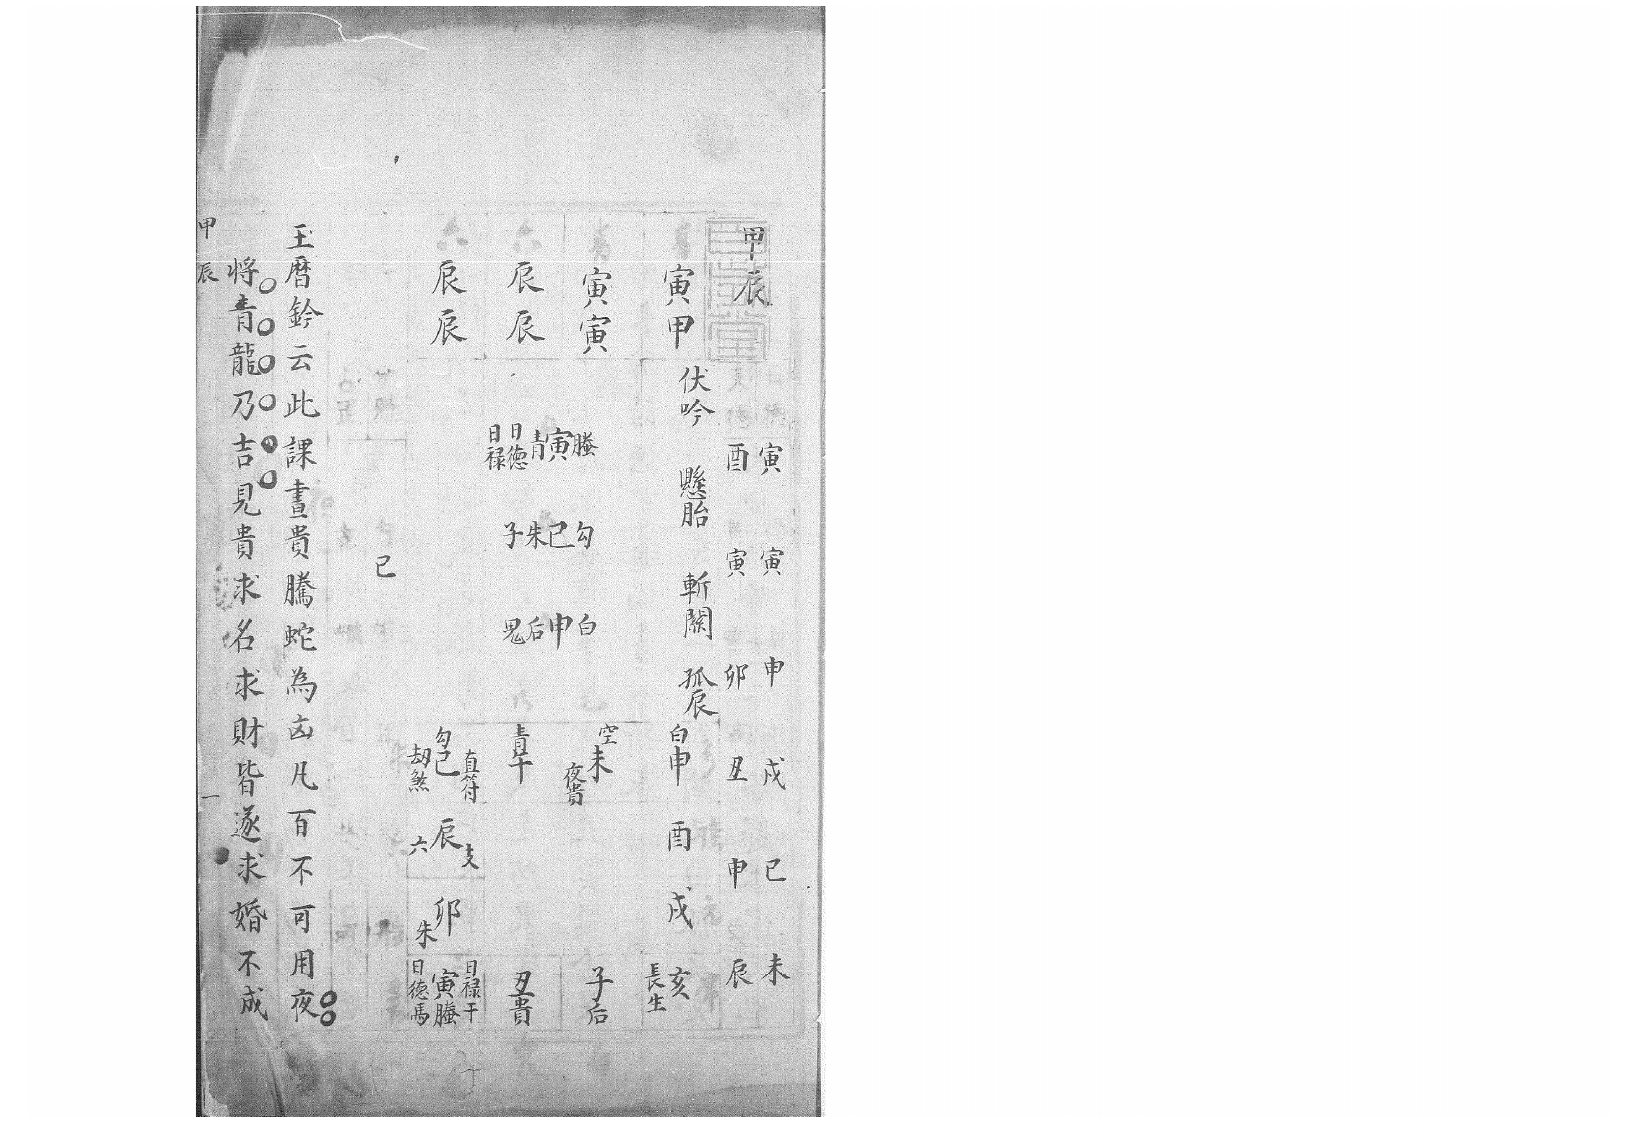 甲辰
寅 寅 申 戌 巳 未
酉 寅 卯 丑 申 辰
寅甲 伏吟 懸胎 斬關 孤辰
白申 酉 戌 亥 長生
寅寅
螣寅青 日德 日祿
勾巳朱 子
白申后 鬼
空未 夜貴
子后
辰辰
青午
丑貴
辰辰
直符 勾巳 劫煞
支 辰 六
卯 朱
日祿干 寅螣 日德馬
巳
玉曆鈐云此課晝貴騰蛇為凶凡百不可用夜
將青龍乃吉見貴求名求財皆遂求婚不成
甲辰
一